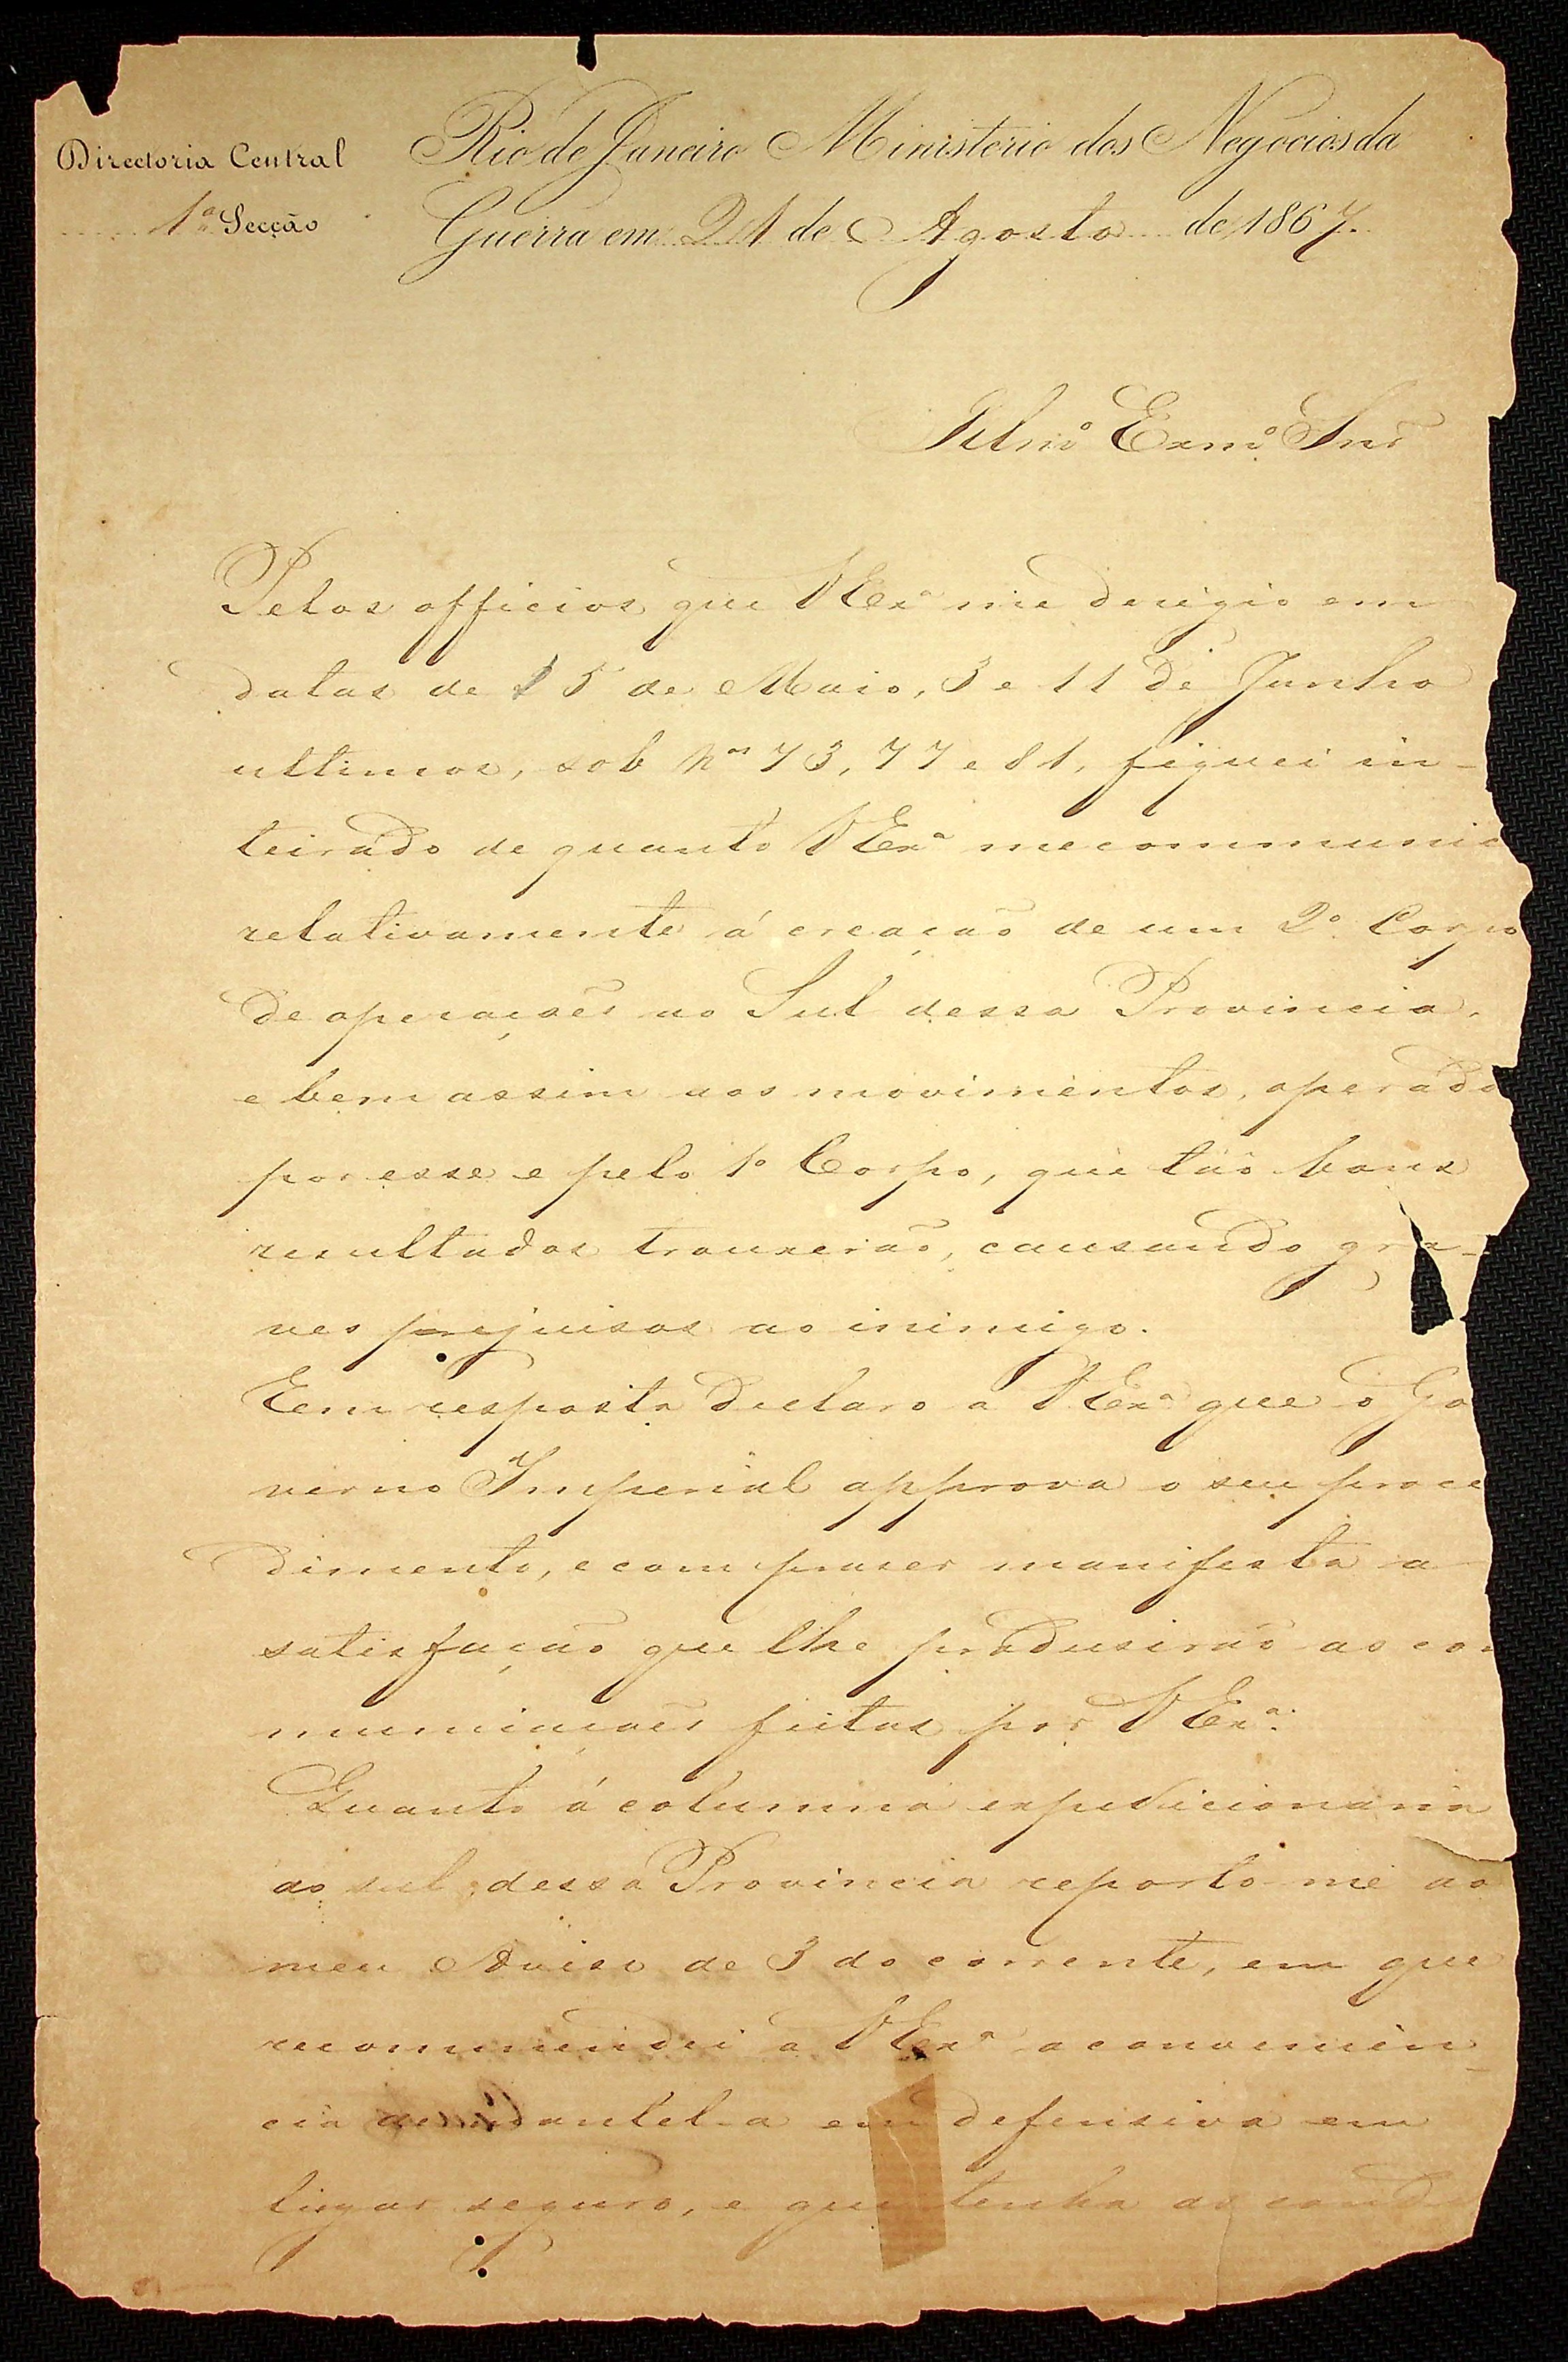 Directoria Central
1ª Secção
Rio de Janeiro Ministerio dos Negocios da
Guerra em 21 de Agosto de 1867.
Illmº Exmº Snr
Pelos officios que VExª me dirigio em
datas de 15 de Maio, 3 e 11 de Junho
ultimos, sob nos 73, 77 e 81, fiquei in-
teirado de quanto VExª me communic
relativamente á creação de um 2º Corpo
de operações ao Sul dessa Provincia,
e bem assim aos movimentos, operado
por esse e pelo 1º Corpo, que tão bons
resultados trouxerão, causando gra-
ves prejuisos ao inimigo.
Em resposta declaro a VExª que o Go
verno Imperial approva o seu proce
dimento, e com praser manifesta a
satisfação que lhe produsirão as com
municações feitas por VExª.
Quanto á columna expedicionaria
ao sul dessa Provincia reporto-me ao
meu Aviso de 3 do corrente, em que
recommendei a VExª a convenien-
cia de mantel-a em defensiva em
lugar seguro, e que tenha as condi